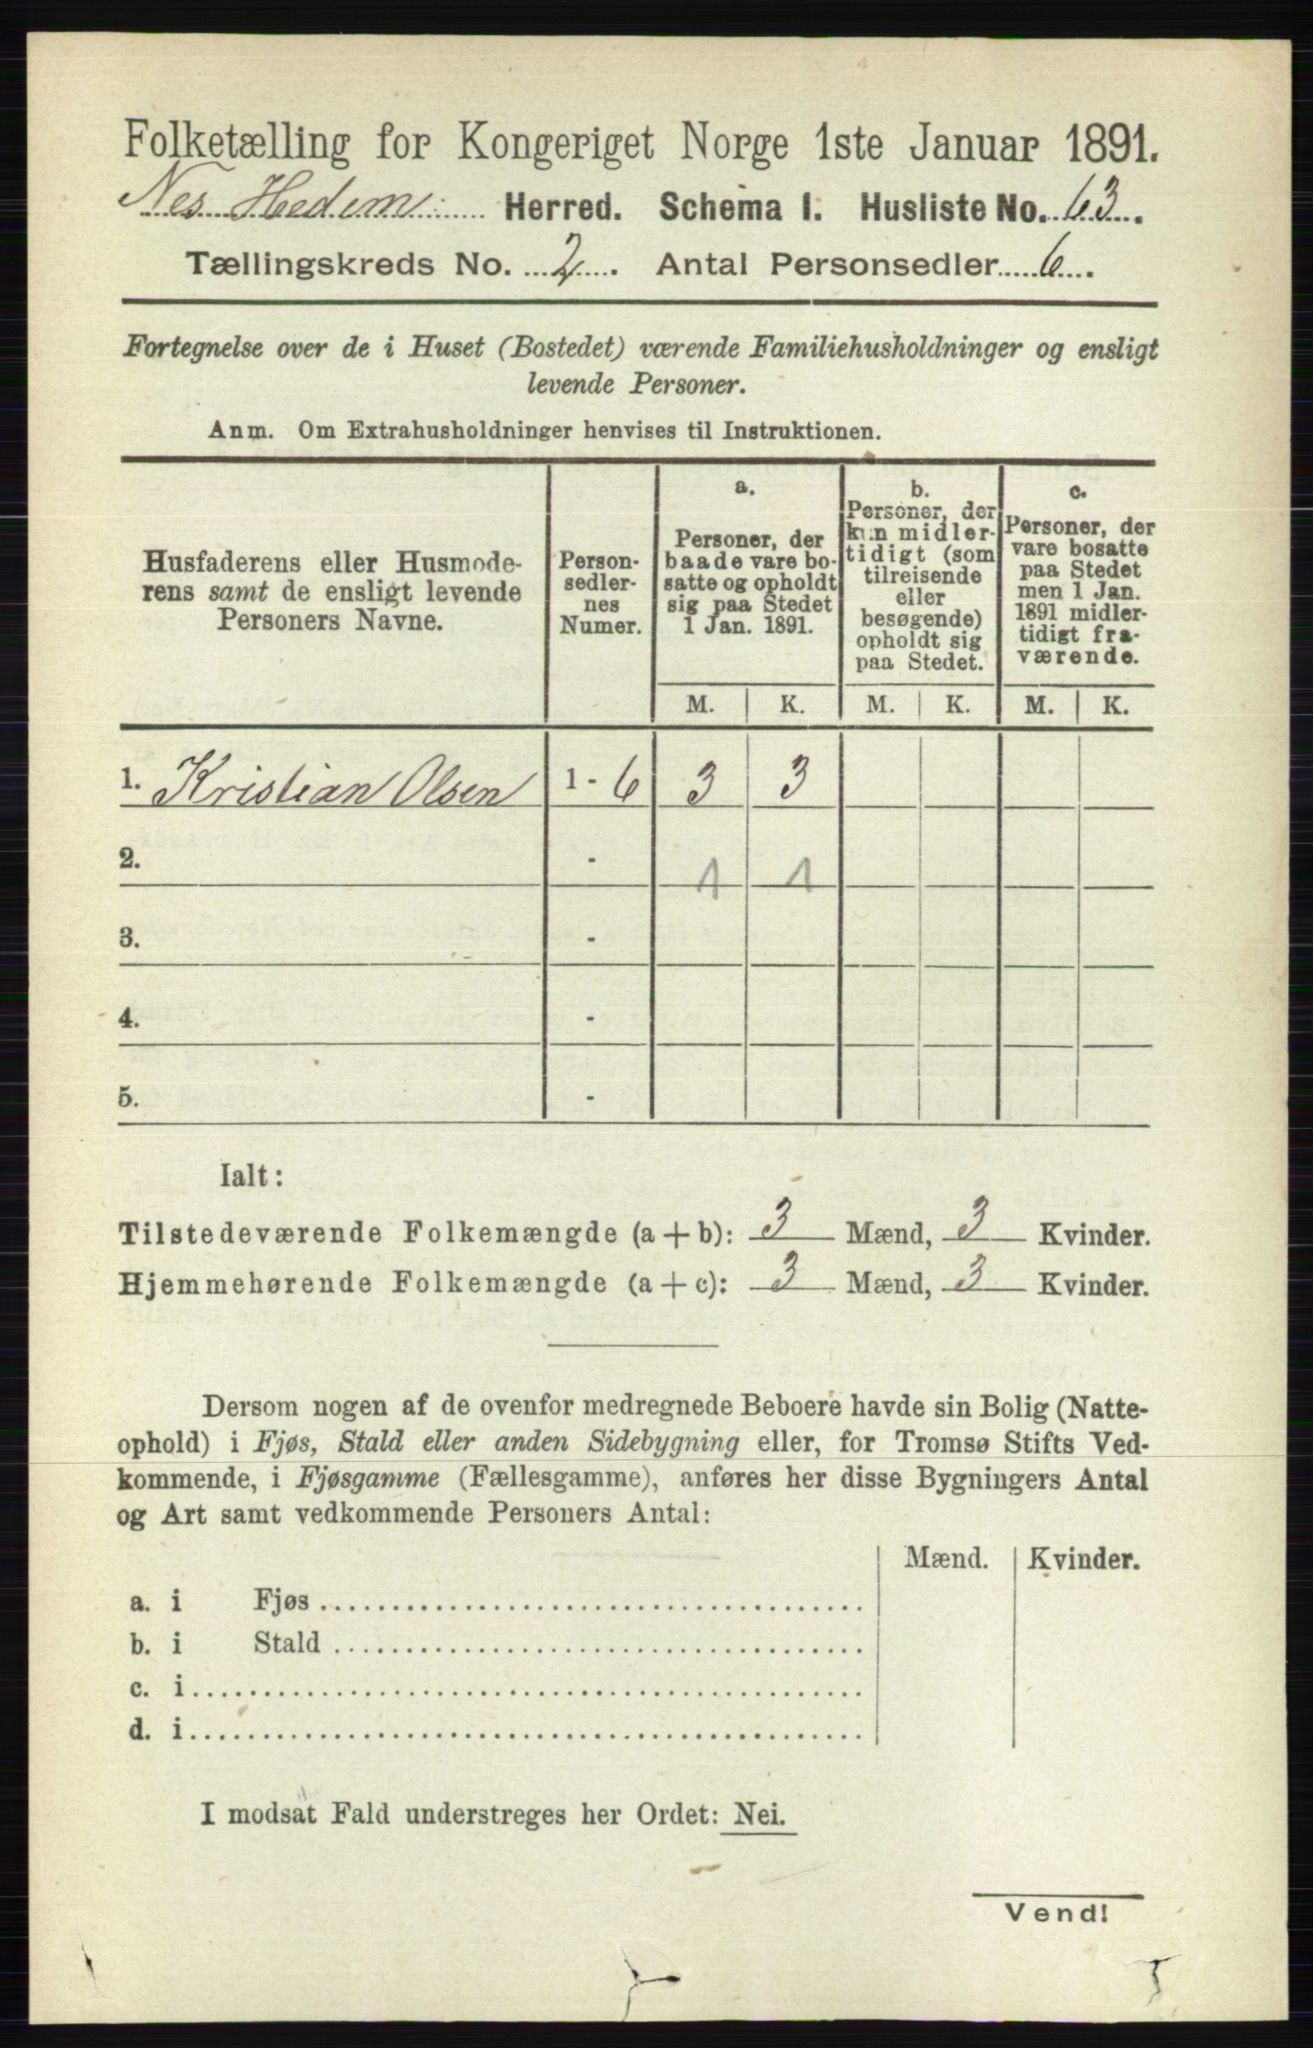 Folketælling for Kongeriget Norge 1ste Januar 1891.
Nes Hedem: Herred. Schema I. Husliste No. 63.
Tællingskreds No. 2. Antal Personsedler 6.
Fortegnelse over de i Huset (Bostedet) værende Familiehusholdninger og ensligt
levende Personer.
Anm. Om Extrahusholdninger henvises til Instruktionen.
Husfaderens eller Husmode-
rens samt de ensligt levende
Personers Navne.
Person-
sedler-
nes
Numer.
a.
Personer, der
baade vare bo-
satte og opholdt
sig paa Stedet
1 Jan. 1891.
b.
Personer, der
kun midler-
tidigt (som
tilreisende
eller
besøgende)
opholdt sig
paa Stedet.
c.
Personer, der
vare bosatte
paa Stedet
men 1 Jan.
1891 midler-
tidigt fra-
værende.
M. K. M. K. M. K.
1. Kristian Olsen 1 - 6 3 3
2. - 1 1
3. -
4. -
5. -
Ialt:
Tilstedeværende Folkemængde (a + b): 3 Mænd, 3 Kvinder.
Hjemmehørende Folkemængde (a + c): 3 Mænd, 3 Kvinder.
Dersom nogen af de ovenfor medregnede Beboere havde sin Bolig (Natte-
ophold) i Fjøs, Stald eller anden Sidebygning eller, for Tromsø Stifts Ved-
kommende, i Fjøsgamme (Fællesgamme), anføres her disse Bygningers Antal
og Art samt vedkommende Personers Antal:
Mænd. Kvinder.
a. i Fjøs
b. i Stald
c. i
d. i
I modsat Fald understreges her Ordet: Nei.
Vend!